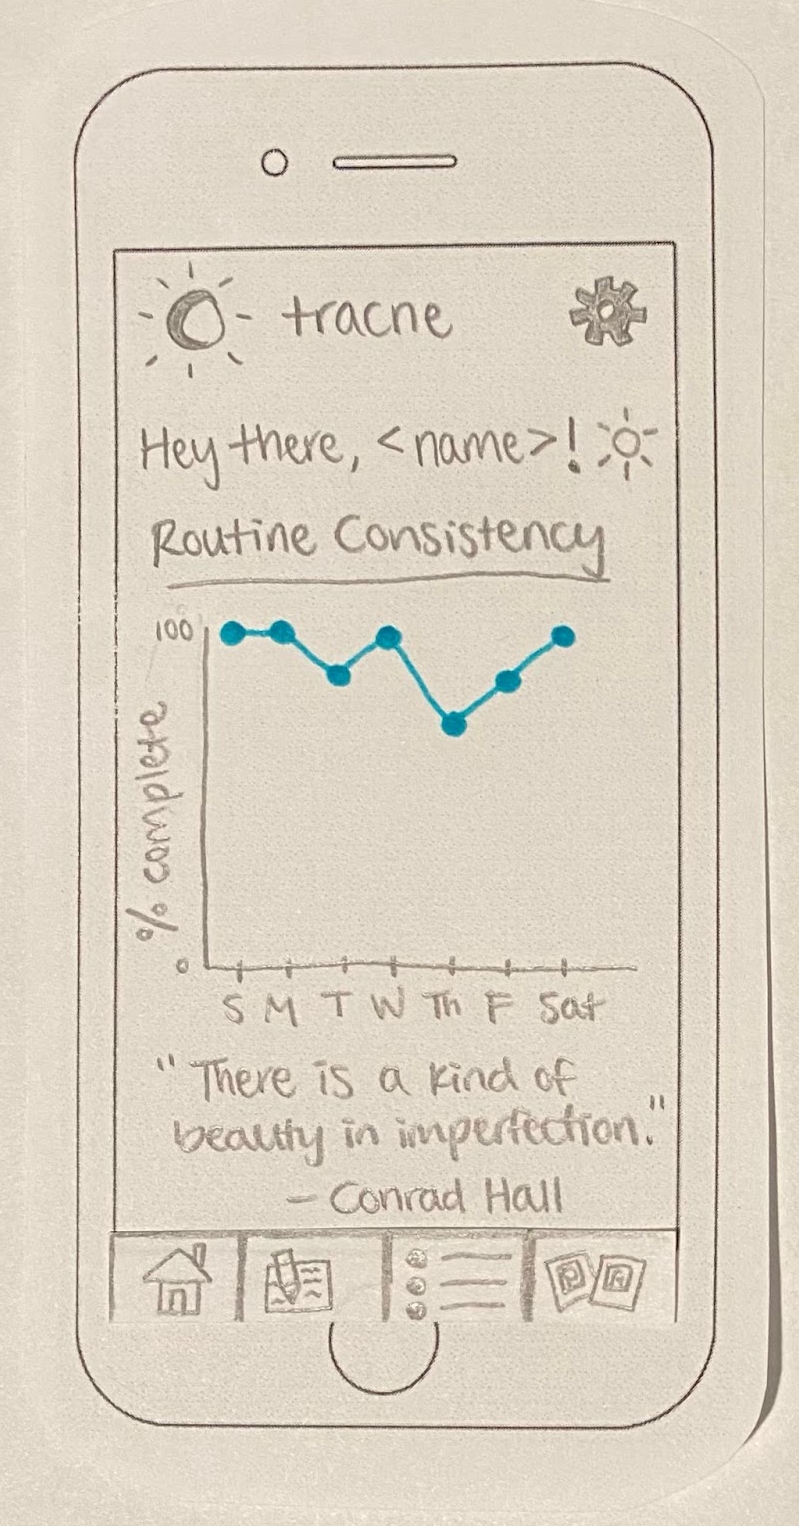 tracne
Hey there, <name>!
Routine Consistency
100
% complete
0
S M T W Th F Sat
"There is a kind of
beauty in imperfection."
- Conrad Hall